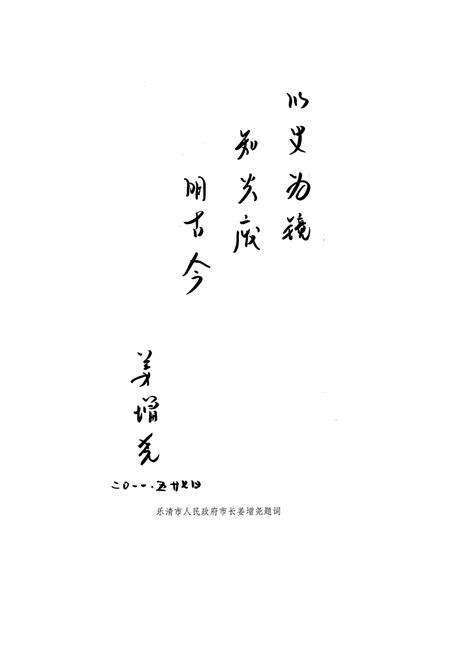 以史为镜
知兴废
明古今
姜增尧
二〇一一·五·廿七日
乐清市人民政府市长姜增尧题词